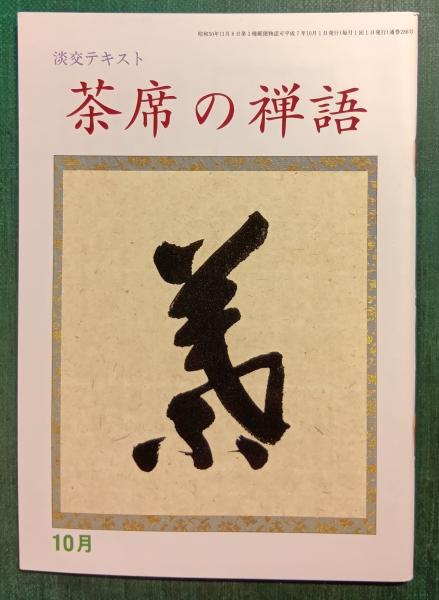 昭和50年11月8日第3種郵便物認可平成7年10月1日発行(毎月1回1日発行)通巻286号
淡交テキスト
茶席の禅語
10月